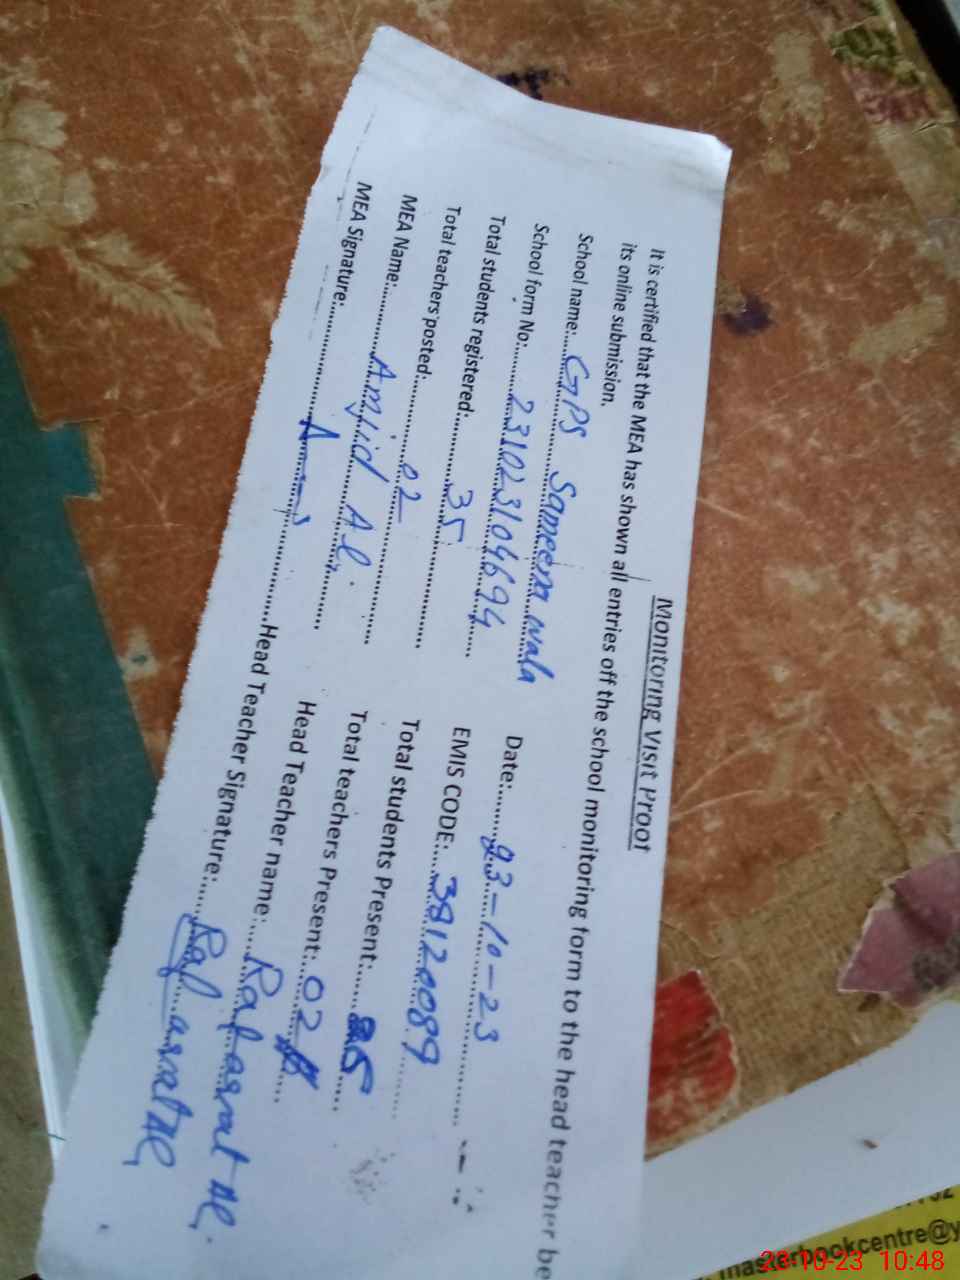 Monitoring Visit Proof
It is certified that the MEA has shown all entries off the school monitoring form to the head teacher be
its online submission.
School name:....GPS Sameera wala Date:....23-10-23
School form No:....231023104694 EMIS CODE:....38120089
Total students registered:....35 Total students Present:....25
Total teachers posted:....02 Total teachers Present:....02
MEA Name:....Amjid Al. Head Teacher name:....
MEA Signature:....Head Teacher Signature:....
masterbookcentre@y
23-10-23 10:48